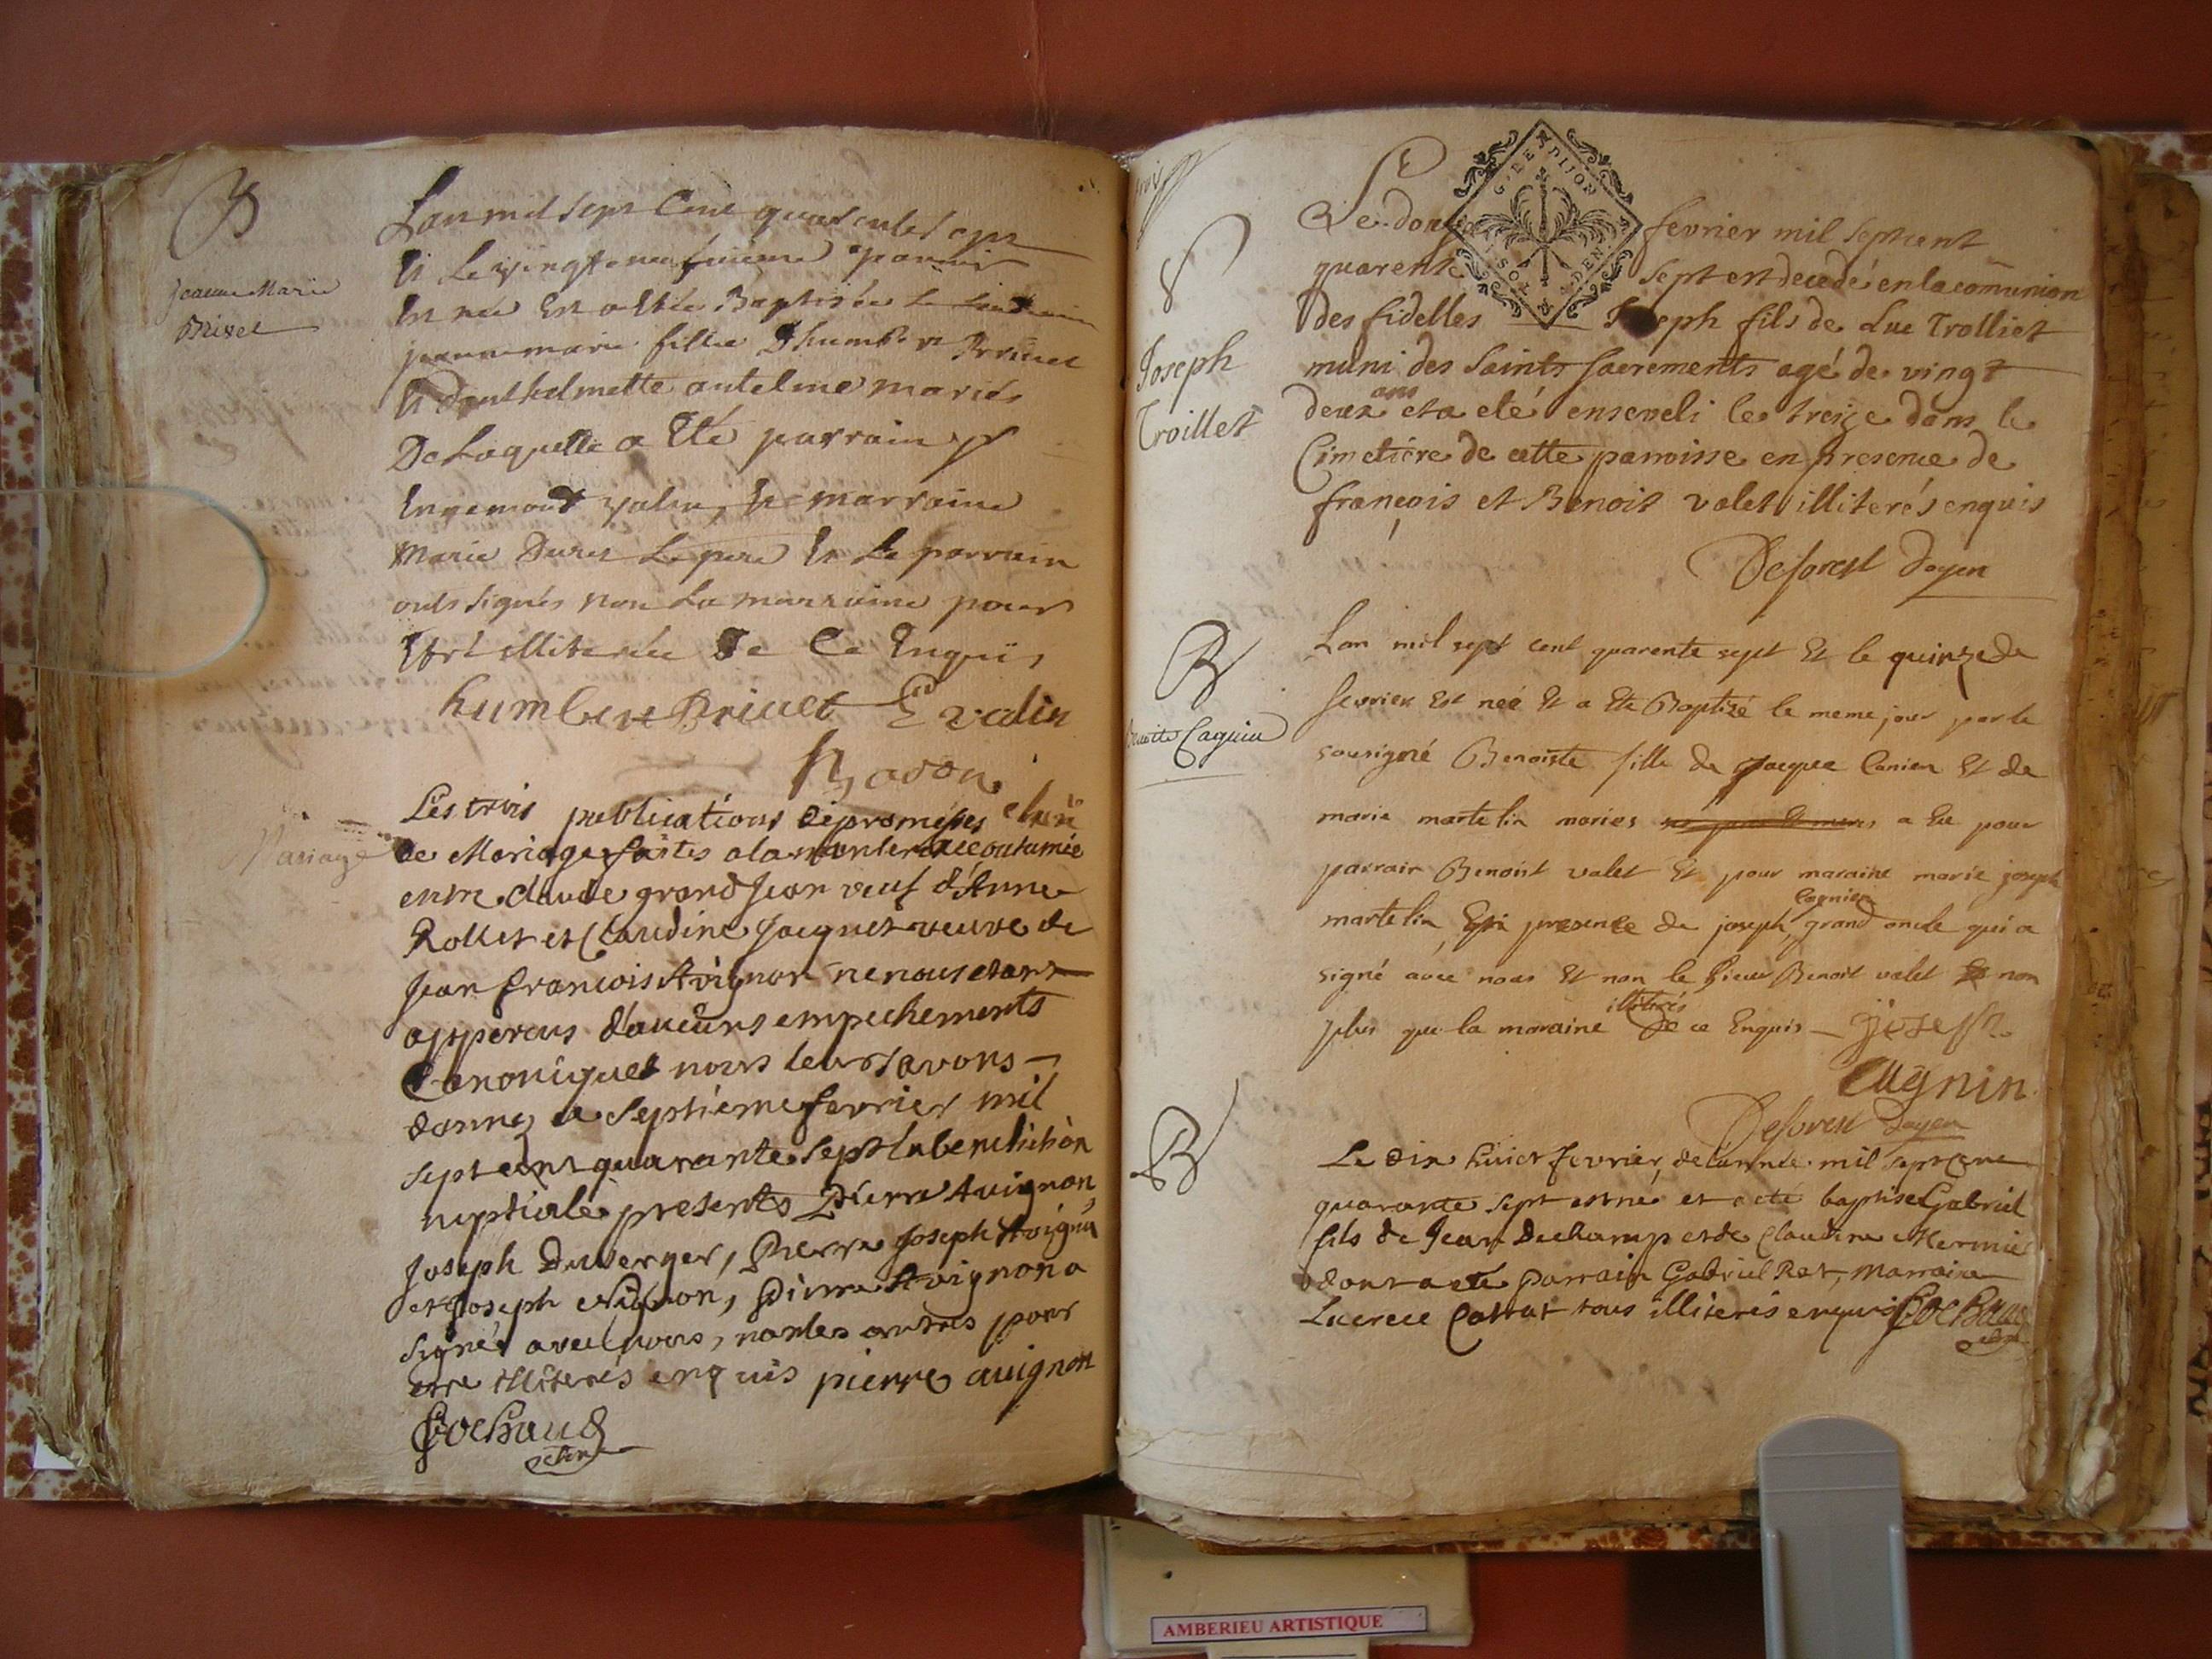 B
Jeanne Marie
Brivet
Lan mil sept Cent quarente sept
Et Le vingt neufuieme janvier
Est née Est a Etée Baptisée le
jeanne marie fillie Dhumbert Brivet
Et Danthelmette anteline mariés
De Laquelle a Eté parrain
Engemont valin, Et marraine
Marie Duret Le pere Et Le parrain
onts signés non La marraine pour
Etre illiterée De Ce Enquis
humbert Brivet E valin
Mariage
Les trois publications de promesses
de Mariage faites a la maniere accoutumée
entre claude grand Jean veuf d'Anne
Rollet et Claudine Jacquet veuve de
Jean francois Avignon ne nous etant
apperçus d'aucuns empechements
Canoniques nous leurs avons
donné le septiéme fevrier mil
sept cent quarante sept la benediction
nuptiale presents Pierre Avignon,
Joseph Duverger, Pierre Joseph Avignon
et Joseph Avignon, Pierre Avignon a
signé avec nous, non les autres pour
etre illiterés enquis pierre avignon
Bochaud
Joseph
Troillet
G. DE DIJON
SOL DEN
Le douze fevrier mil sept cent
quarente sept est decedé en la com̃union
des fidelles Joseph fils de Luc Trolliet
muni des saints sacrements agé de vingt
deux ans et a eté enseveli le treize dans le
Cimetiére de cette parroisse en presence de
françois et Benoit valet illiterés enquis
Deforest doyen
B
Benoite Cagnin
Lan mil sept cent quarente sept Et le quinze de
fevrier Est neé Et a Ete Baptizé le meme jour par le
sousigné Benoiste fille de Jacques Canien Et de
marie martelin mariés a Eu pour
parrain Benoist valet Et pour maraine marie joseph
martelin, En presence de joseph Cagnien grand oncle qui a
signé avec nous Et non le sieur Benoit valet non
plus que la maraine illiterés de ce Enquis Joseph
Cagnin
Deforest Doyen
B
Le dix huict fevrier de l'année mil sept cent
quarante sept est né et a eté baptisé Gabriel
fils de Jean Dechamp et de Claudine Mermie
dont a eté parrain Gabriel Rat, Marraine
Lucrece Cottat tous illiterés enquis Bochaud
AMBERIEU ARTISTIQUE